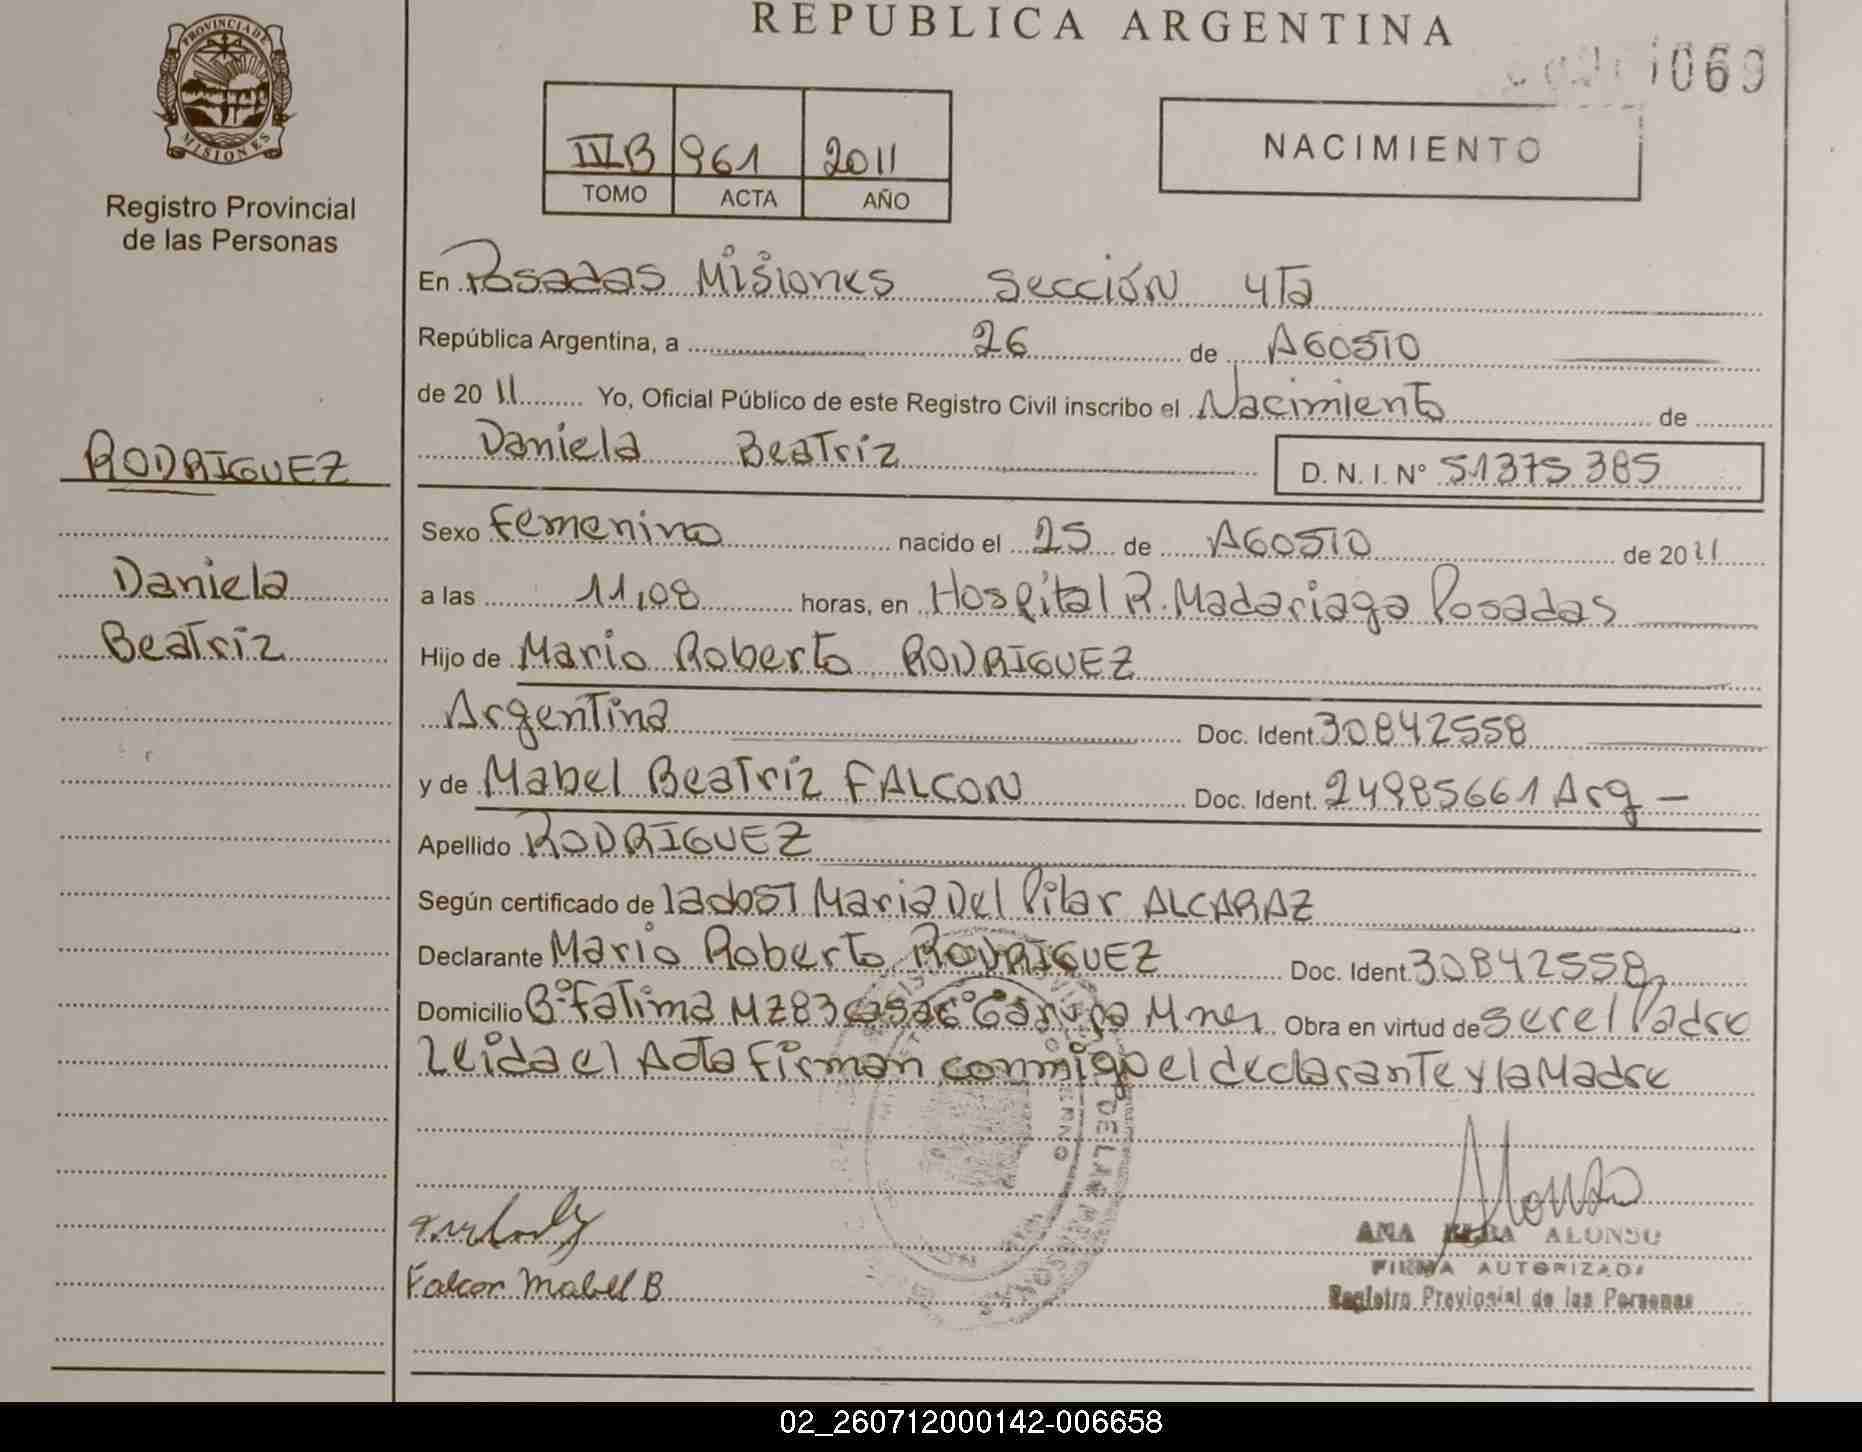 REPUBLICA ARGENTINA
1069
PROVINCIA DE MISIONES
Registro Provincial
de las Personas
961 2011
TOMO ACTA AÑO
NACIMIENTO
En Posadas Misiones sección 4Ta
República Argentina, a 26 de AGOSTO
de 2011 Yo, Oficial Público de este Registro Civil inscribo el Nacimiento de
Daniela Beatriz D. N. I. Nº 51375385
RODRIGUEZ
Daniela
Beatriz
Sexo Femenino nacido el 25 de AGOSTO de 2011
a las 11,08 horas, en Hospital R. Madariaga Posadas
Hijo de Mario Roberto RODRIGUEZ
Argentina Doc. Ident. 30842558
y de Mabel Beatriz FALCON Doc. Ident. 24985661 Arg -
Apellido RODRIGUEZ
Según certificado de la obst Maria Del Pilar ALCARAZ
Declarante Mario Roberto RODRIGUEZ Doc. Ident. 30842558
Domicilio Bº Fatima MZ 83 casa Garupa Mnes Obra en virtud de ser el Padre
Leida el Acta Firman conmigo el declarante y la Madre
Falcon Mabel B
Alonso
ANA ELBA ALONSO
FIRMA AUTORIZADA
Registro Provincial de las Personas
02_260712000142-006658